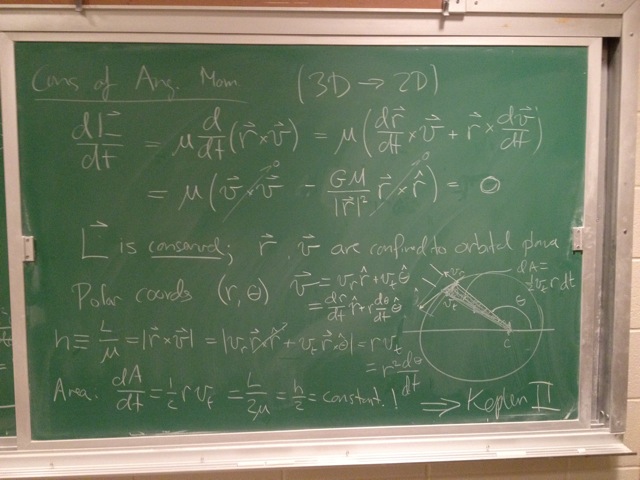 Cons of Ang. Mom. (3D → 2D)
dL⃗/dt = μ d/dt (r⃗ × v⃗) = μ (dr⃗/dt × v⃗ + r⃗ × dv⃗/dt)
= μ (v⃗ × v⃗ - GM/|r⃗|² r⃗ × r̂) = 0
L⃗ is conserved; r⃗, v⃗ are confined to orbital plane
Polar coords (r, θ) v⃗ = vᵣ r̂ + vₜ θ̂
= dr/dt r̂ + r dθ/dt θ̂
h ≡ L/μ = |r⃗ × v⃗| = |vᵣ r⃗ × r̂ + vₜ r⃗ × θ̂| = r vₜ
= r² dθ/dt
Area: dA/dt = ½ r vₜ = L/2μ = h/2 = constant! ⇒ Kepler II
dA =
½ vₜ r dt
vᵣ
vₜ
θ
C